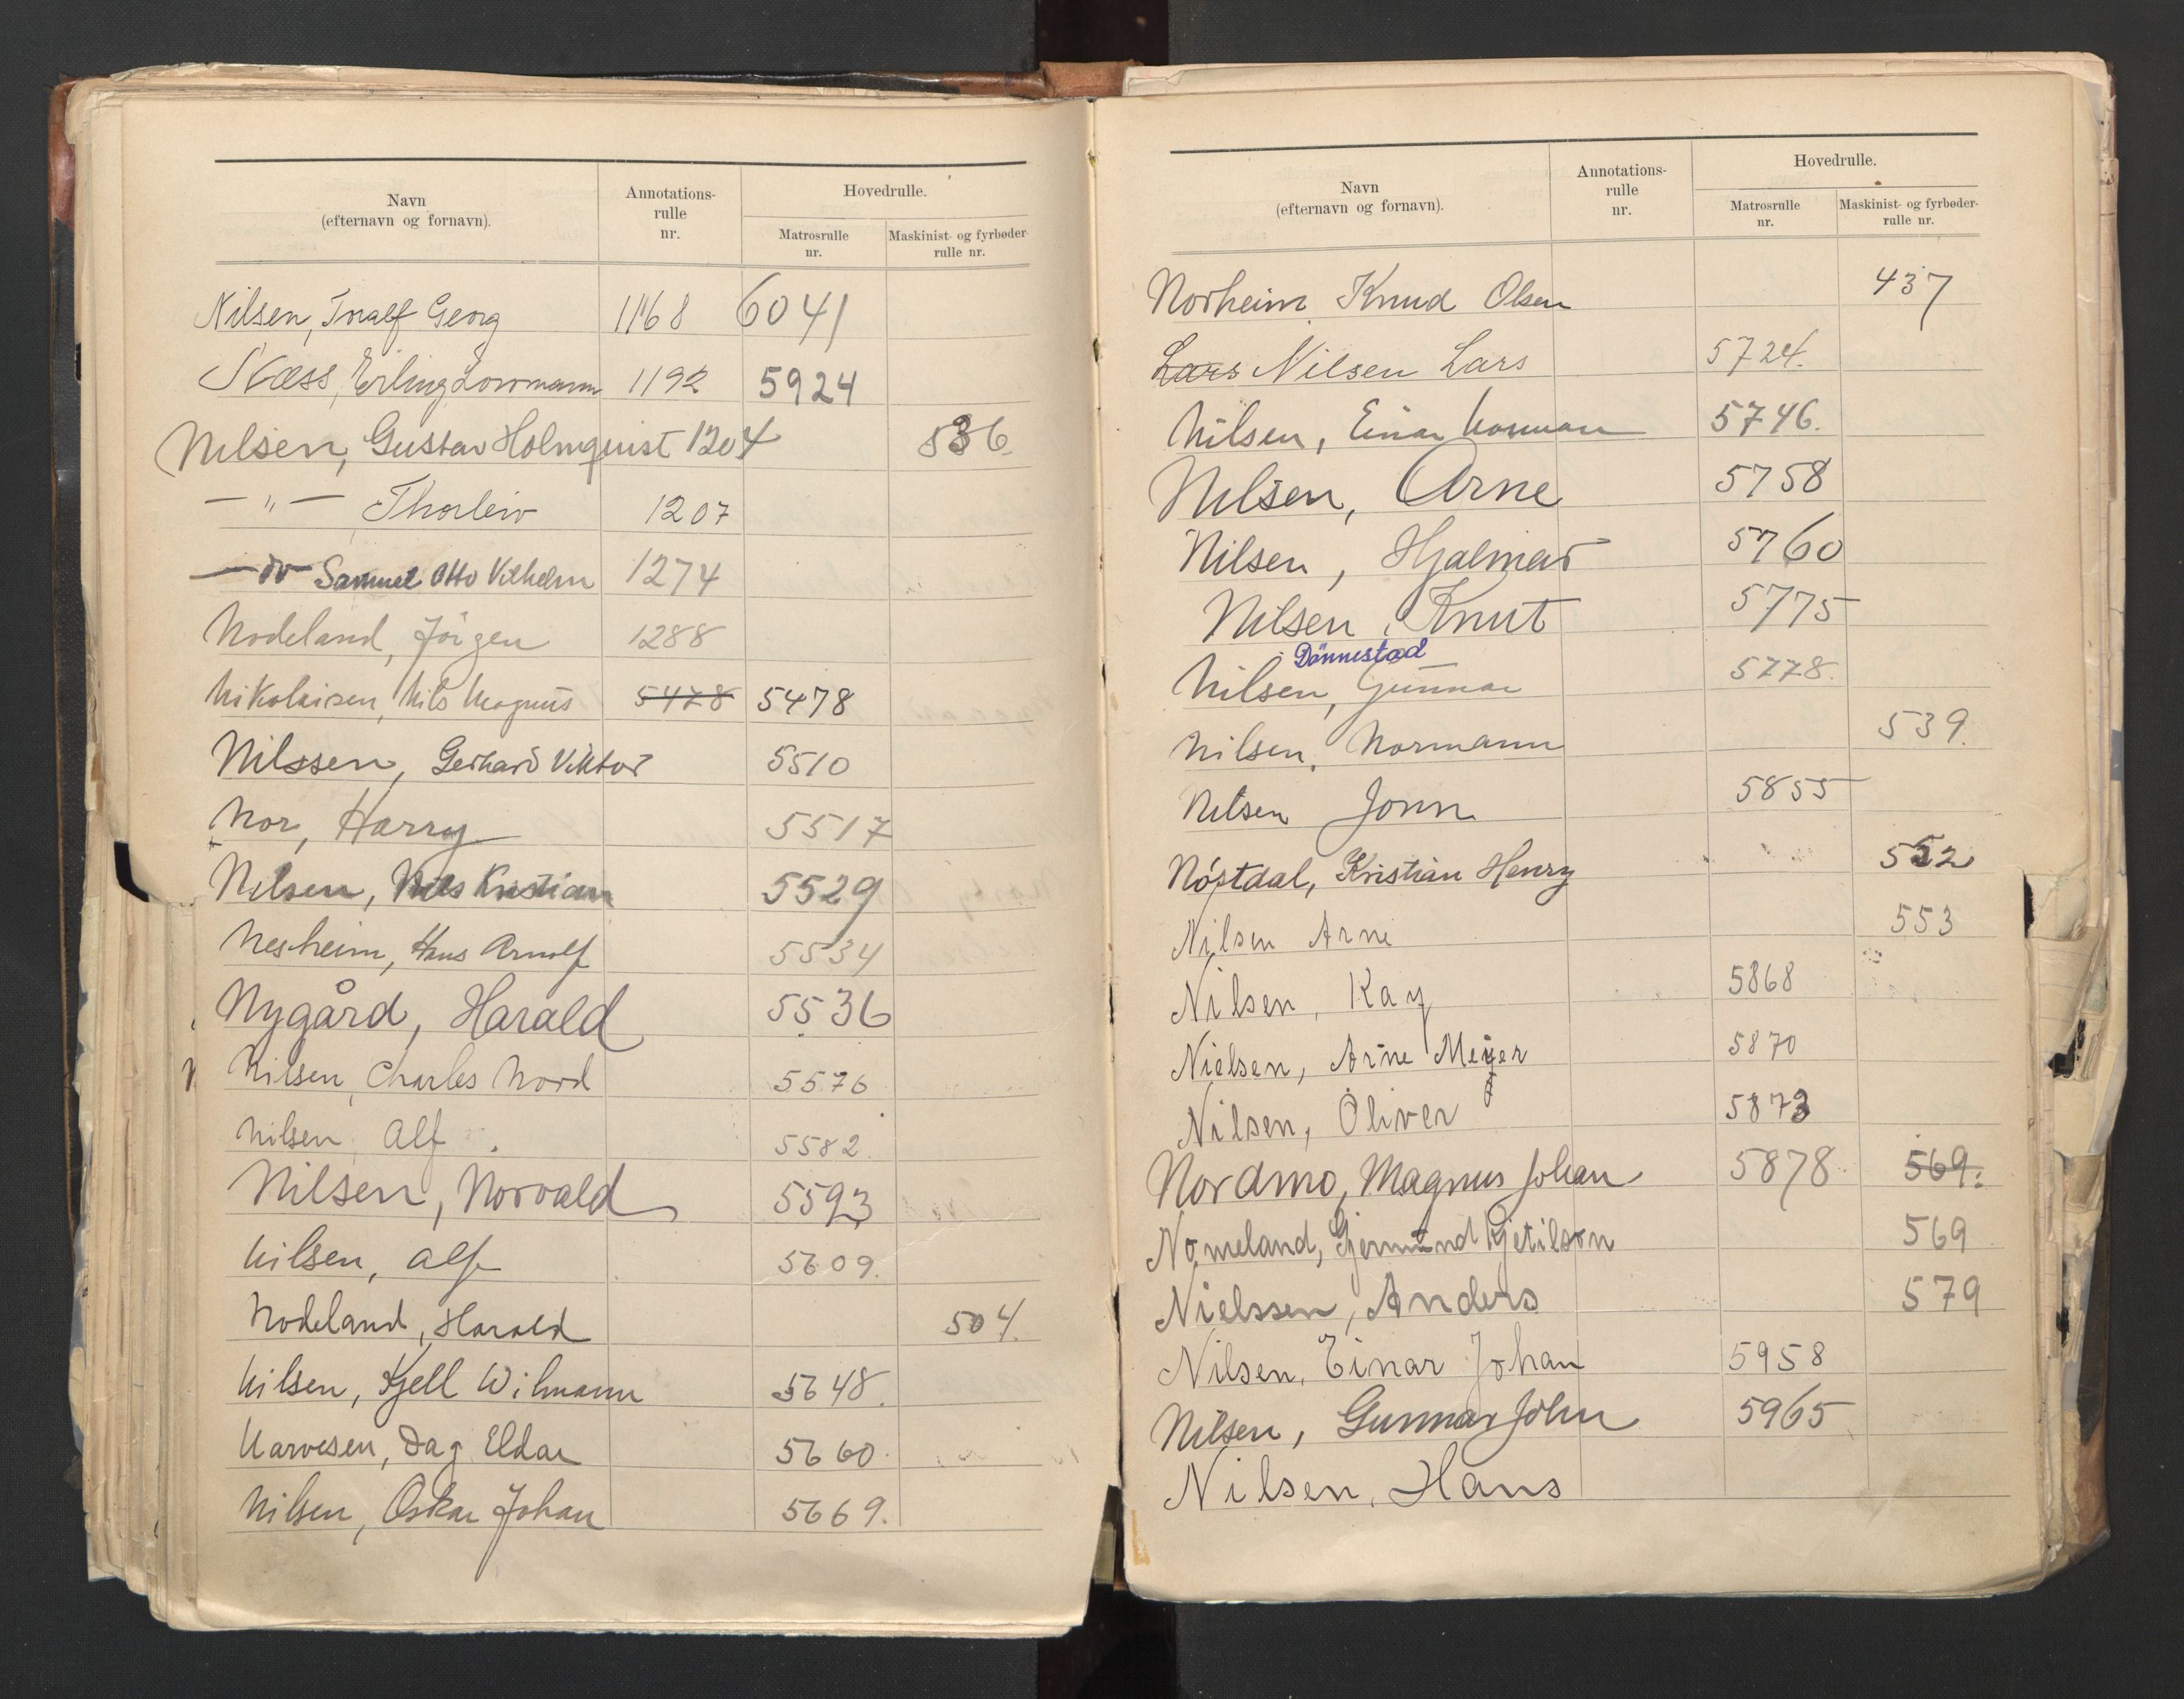 Navn
(efternavn og fornavn).
Annotations-
rulle
nr.
Hovedrulle.
Matrosrulle
nr.
Maskinist- og fyrbøder-
rulle nr.
Nilsen, Toralf Georg 1168 6041
Næss, Erling Lorvmann 1192 5924
Nilsen, Gustav Holmquist 1204 536.
— „ — Thorleiv 1207
— do — Samuel Otto Vilhelm 1274
Nodeland, Jörgen 1288
Nikolaisen, Nils Magnus 5478 5478
Nilssen, Gerhard Viktor 5510
Nor, Harry 5517
Nilsen, Nils Kristian 5529
Nesheim, Hans Arnulf 5534
Nygård, Harald 5536
Nilsen, Charles Nord 5576
Nilsen, Alf 5582.
Nilsen, Norvald 5593
Nilsen, Alf 5609.
Nodeland, Harald 504.
Nilsen, Kjell Wilmann 5648.
Narvesen, Dag Eldar 5660.
Nilsen, Oskar Johan 5669.
Navn
(efternavn og fornavn).
Annotations-
rulle
nr.
Hovedrulle.
Matrosrulle
nr.
Maskinist- og fyrbøder-
rulle nr.
Norheim, Knud Olsen 437
Lars Nilsen Lars 5724.
Nilsen, Einar Norman 5746.
Nilsen, Arne 5758
Nilsen, Hjalmar 5760
Nilsen, Knut 5775
Dønnestad
Nilsen, Gunnar 5778.
Nilsen, Normann 539.
Nilsen Jonn 5855
Nöstdal, Kristian Henry 552
Nilsen Arne 553
Nilsen, Kay 5868
Nielsen, Arne Meyer 5870
Nilsen, Oliver 5873
Nordmo, Magnus Johan 5878. 569.
Nomeland, Gjermund Kjetilson 569
Nielssen, Anders 579
Nilsen, Einar Johan 5958
Nilsen, Gunnar John 5965
Nilsen, Hans